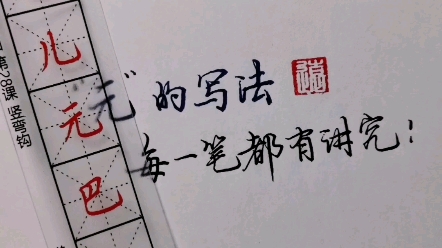 第28课 竖弯钩
儿
元
巴
“元”的写法
每一笔都有讲究！